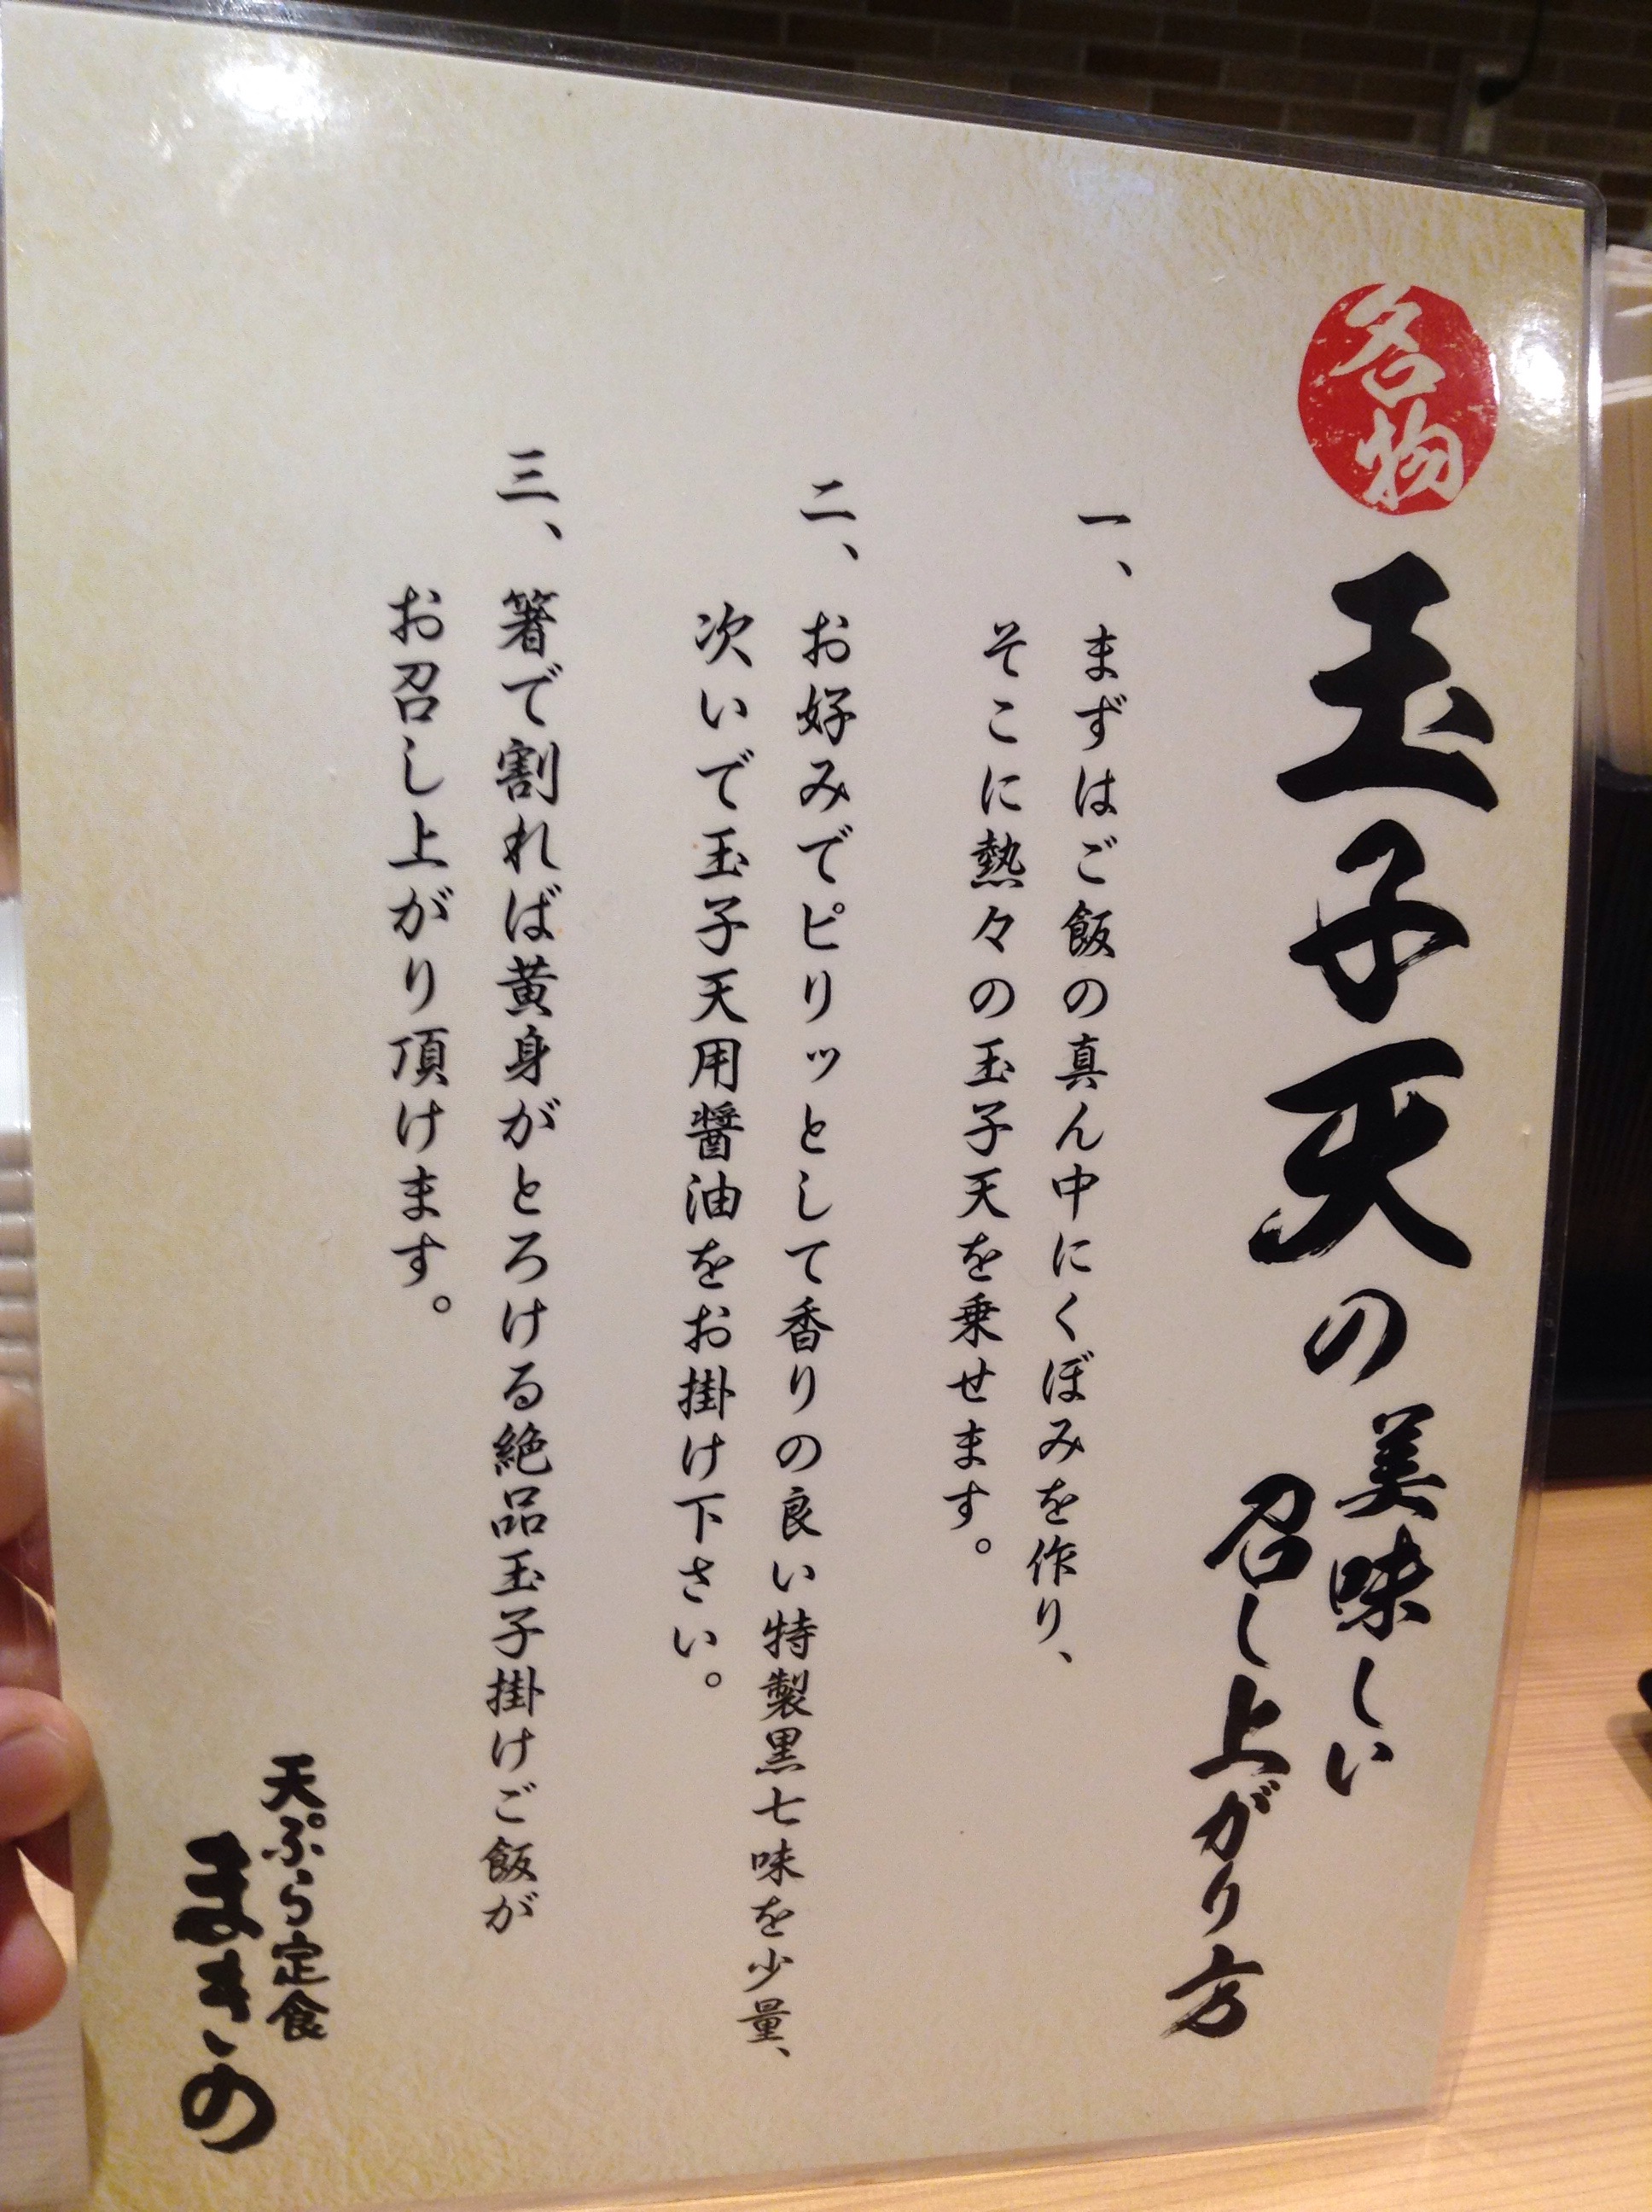 名物
玉子天の
美味しい
召し上がり方
一、まずはご飯の真ん中にくぼみを作り、
そこに熱々の玉子天を乗せます。
二、お好みでピリッとして香りの良い特製黒七味を少量、
次いで玉子天用醤油をお掛け下さい。
三、箸で割れば黄身がとろける絶品玉子掛けご飯が
お召し上がり頂けます。
天ぷら定食
まきの